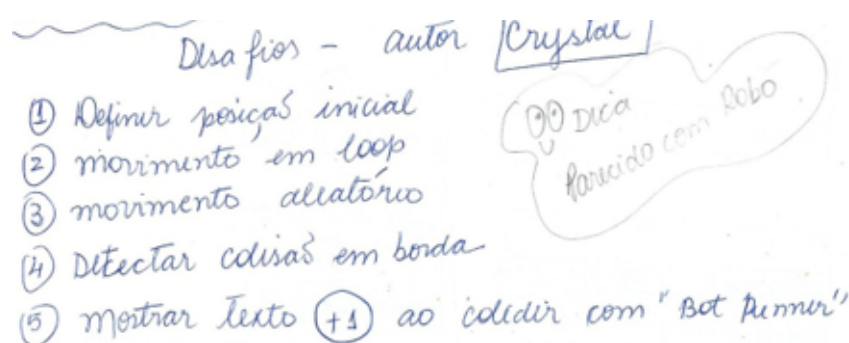 Desafios - autor Crystal
① Definir posição inicial
② movimento em loop
③ movimento aleatório
④ Detectar colisão em borda
⑤ mostrar texto +1 ao colidir com "Bot Runner"
Dica
Parecido com Robo